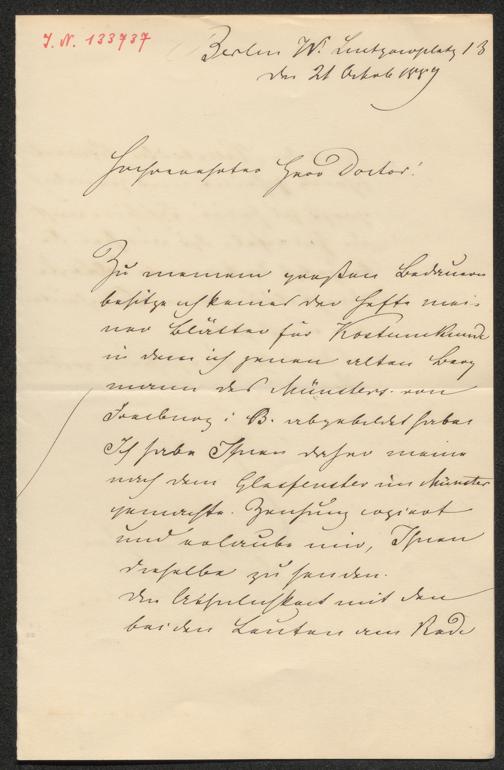 J. N. 133737
Berlin W. Lützowplatz 13
den 21 Octob 1889
Hochverehrter Herr Doctor!
Zu meinem großen Bedauern
besitze ich keines der Hefte mei-
ner Blätter für Kostümkunde
in dem ich jenen alten Berg
mann des Münsters von
Freiburg i. B. abgebildet habe.
Ich habe Ihnen daher meine
nach dem Glasfenster im Münster
gemachte Zeichnung copiert
und erlaube mir, Ihnen
dieselbe zu senden.
Die Ähnlichkeit mit den
beiden Leuten am Rade